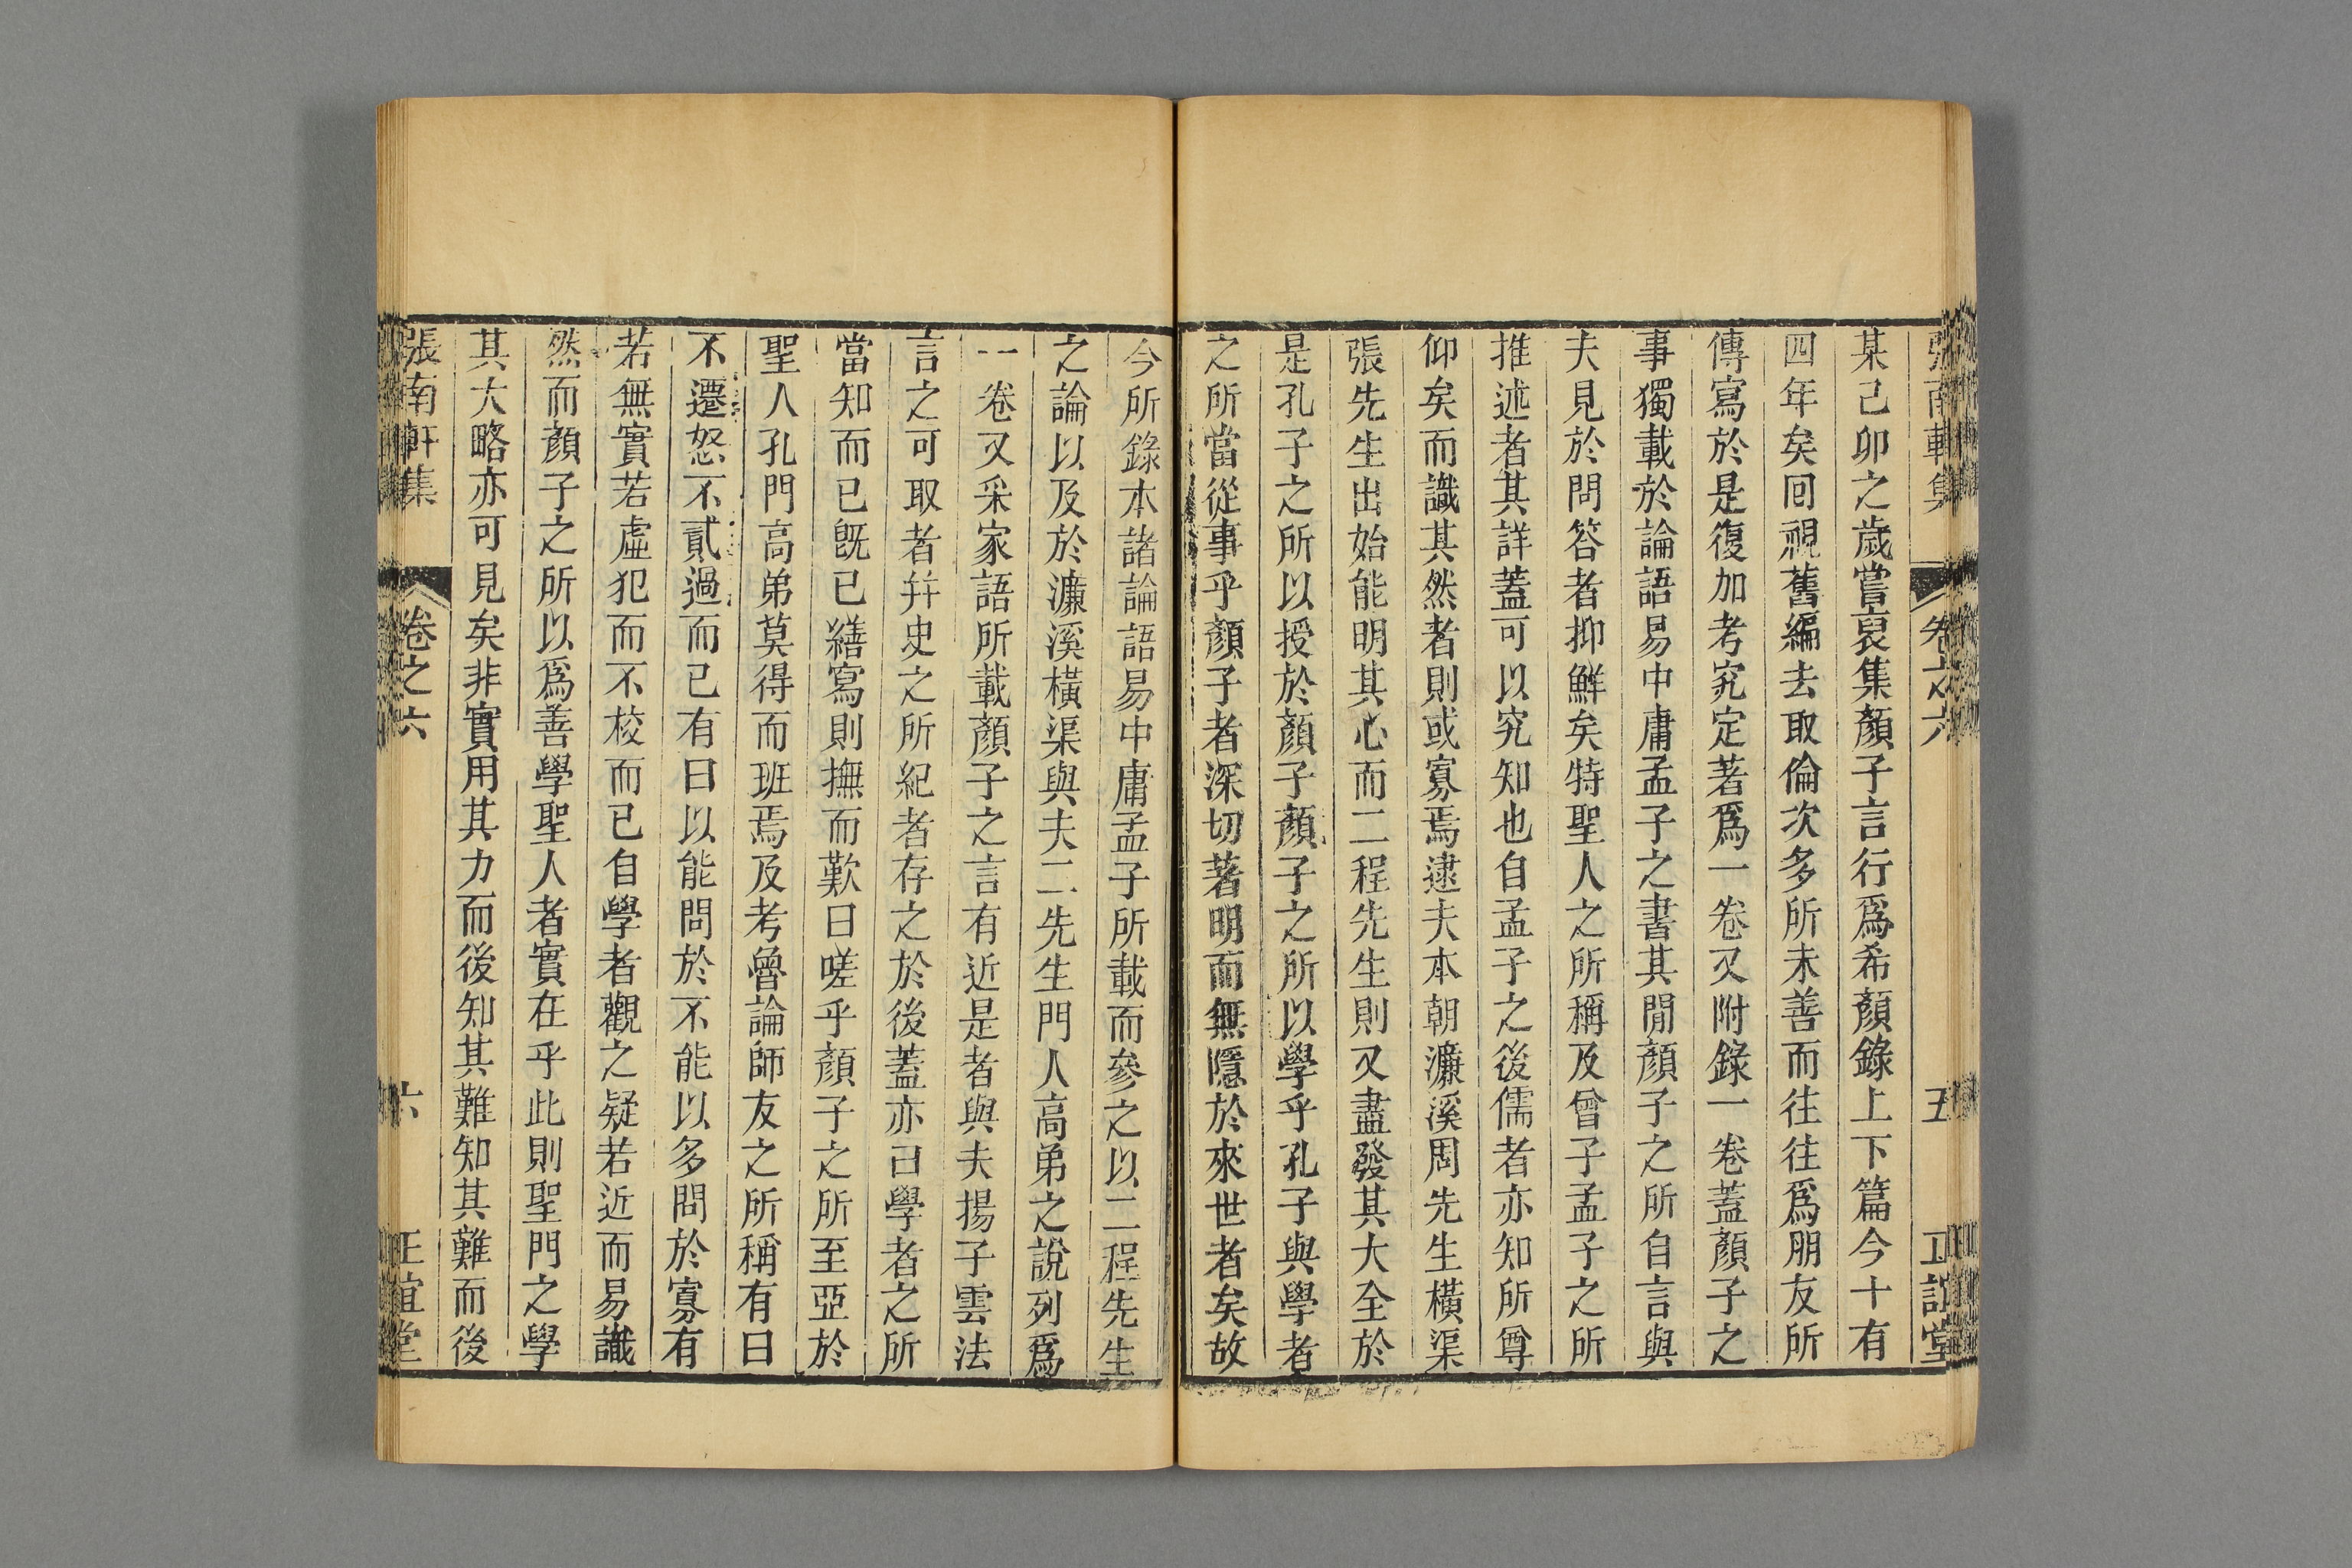 張南軒集 卷之六 五 正誼堂
某己卯之歲嘗裒集顏子言行爲希顏錄上下篇今十有
四年矣回視舊編去取倫次多所未善而往往爲朋友所
傳寫於是復加考究定著爲一卷又附錄一卷蓋顏子之
事獨載於論語易中庸孟子之書其間顏子之所自言與
夫見於問答者抑鮮矣特聖人之所稱及曾子孟子之所
推述者其詳蓋可以究知也自孟子之後儒者亦知所尊
仰矣而識其然者則或寡焉逮夫本朝濂溪周先生橫渠
張先生出始能明其心而二程先生則又盡發其大全於
是孔子之所以授於顏子顏子之所以學乎孔子與學者
之所當從事乎顏子者深切著明而無隱於來世者矣故
今所錄本諸論語易中庸孟子所載而參之以二程先生
之論以及於濂溪橫渠與夫二先生門人高弟之說列爲
一卷又采家語所載顏子之言有近是者與夫揚子雲法
言之可取者幷史之所紀者存之於後蓋亦曰學者之所
當知而已旣已繕寫則撫而歎曰嗟乎顏子之所至亞於
聖人孔門高弟莫得而班焉及考魯論師友之所稱有曰
不遷怒不貳過而已有曰以能問於不能以多問於寡有
若無實若虛犯而不校而已自學者觀之疑若近而易識
然而顏子之所以爲善學聖人者實在乎此則聖門之學
其大略亦可見矣非實用其力而後知其難知其難而後
張南軒集 卷之六 六 正誼堂